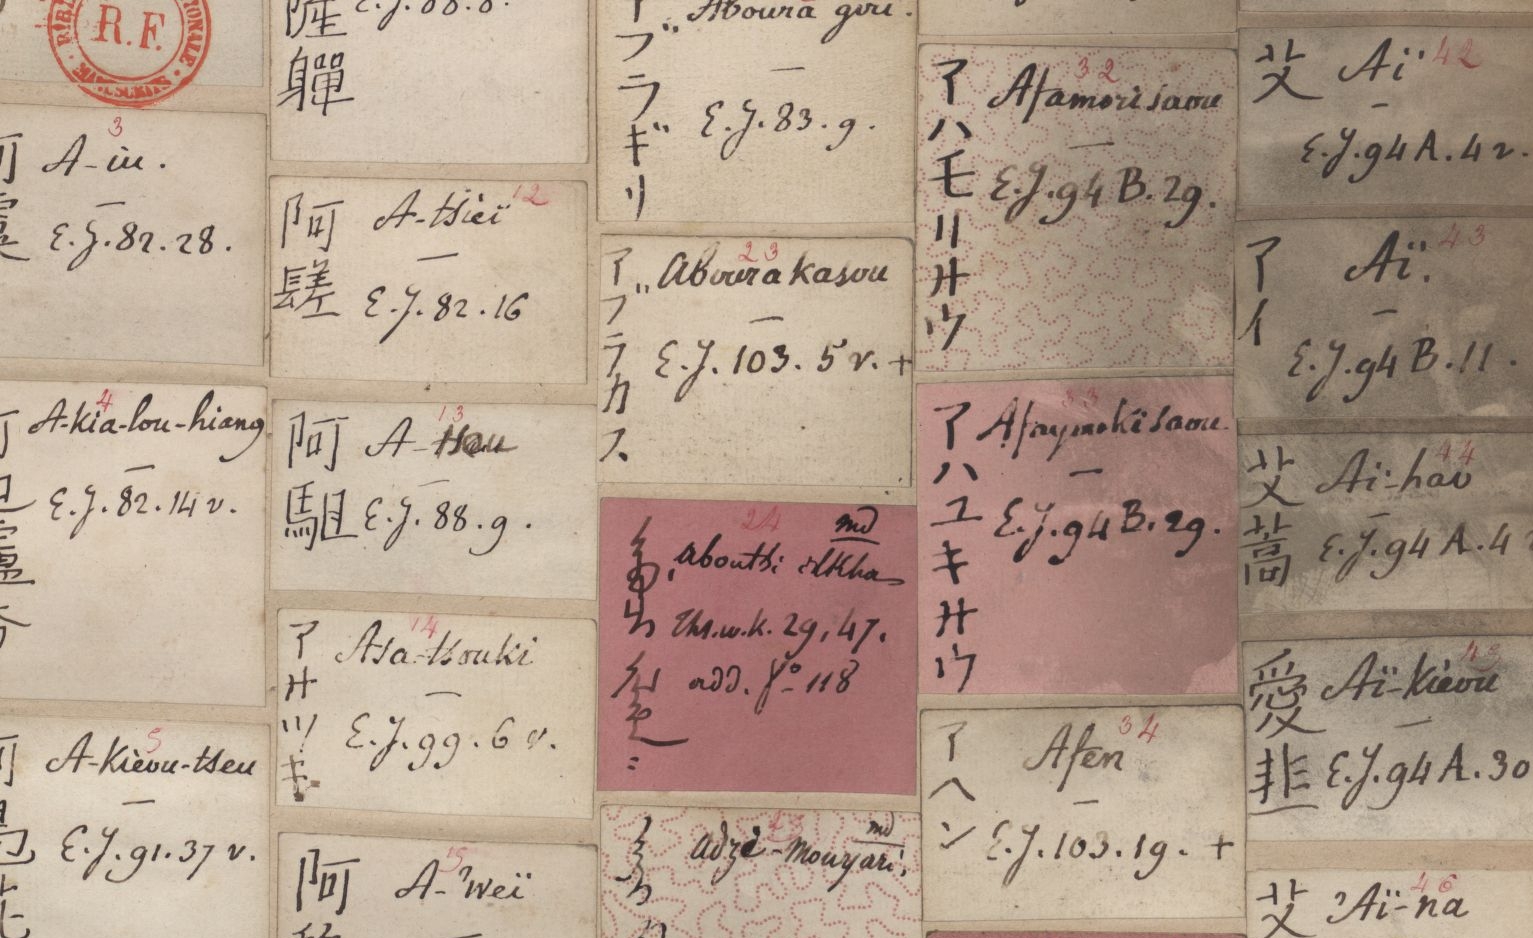 R.F.
3
A-iu.
E.J.82.28.
4
A-kia-lou-hiang
E.J.82.14 v.
5
A-kieou-tseu
E.J.91.37 v.
12
阿
A-tsieï
E.J.82.16
13
阿駔
A-tseu
E.J.88.9.
14
アサツキ
Asa-tsouki
E.J.99.6 v.
15
阿
A-'weï
アブラギリ
Aboura giri.
E.J.83.9.
23
アブラカス
Aboura kasou
E.J.103.5 v. +
24
md
Abouthi
Ths.w.k. 29,47.
add. fº 118
md
Adzé-Mouyari,
32
アハモリサウ
Afamori saou
E.J.94 B.29.
33
アハユキサウ
Afayouki saou
E.J.94 B.29.
34
アヘン
Afen
E.J.103.19. +
42
艾
Aï
E.J.94 A.4 v.
43
アイ
Aï.
E.J.94 B.11.
44
艾蒿
Aï-hao
E.J.94 A.4
45
愛韭
Aï-kieou
E.J.94 A.30
46
艾
'Aï-na